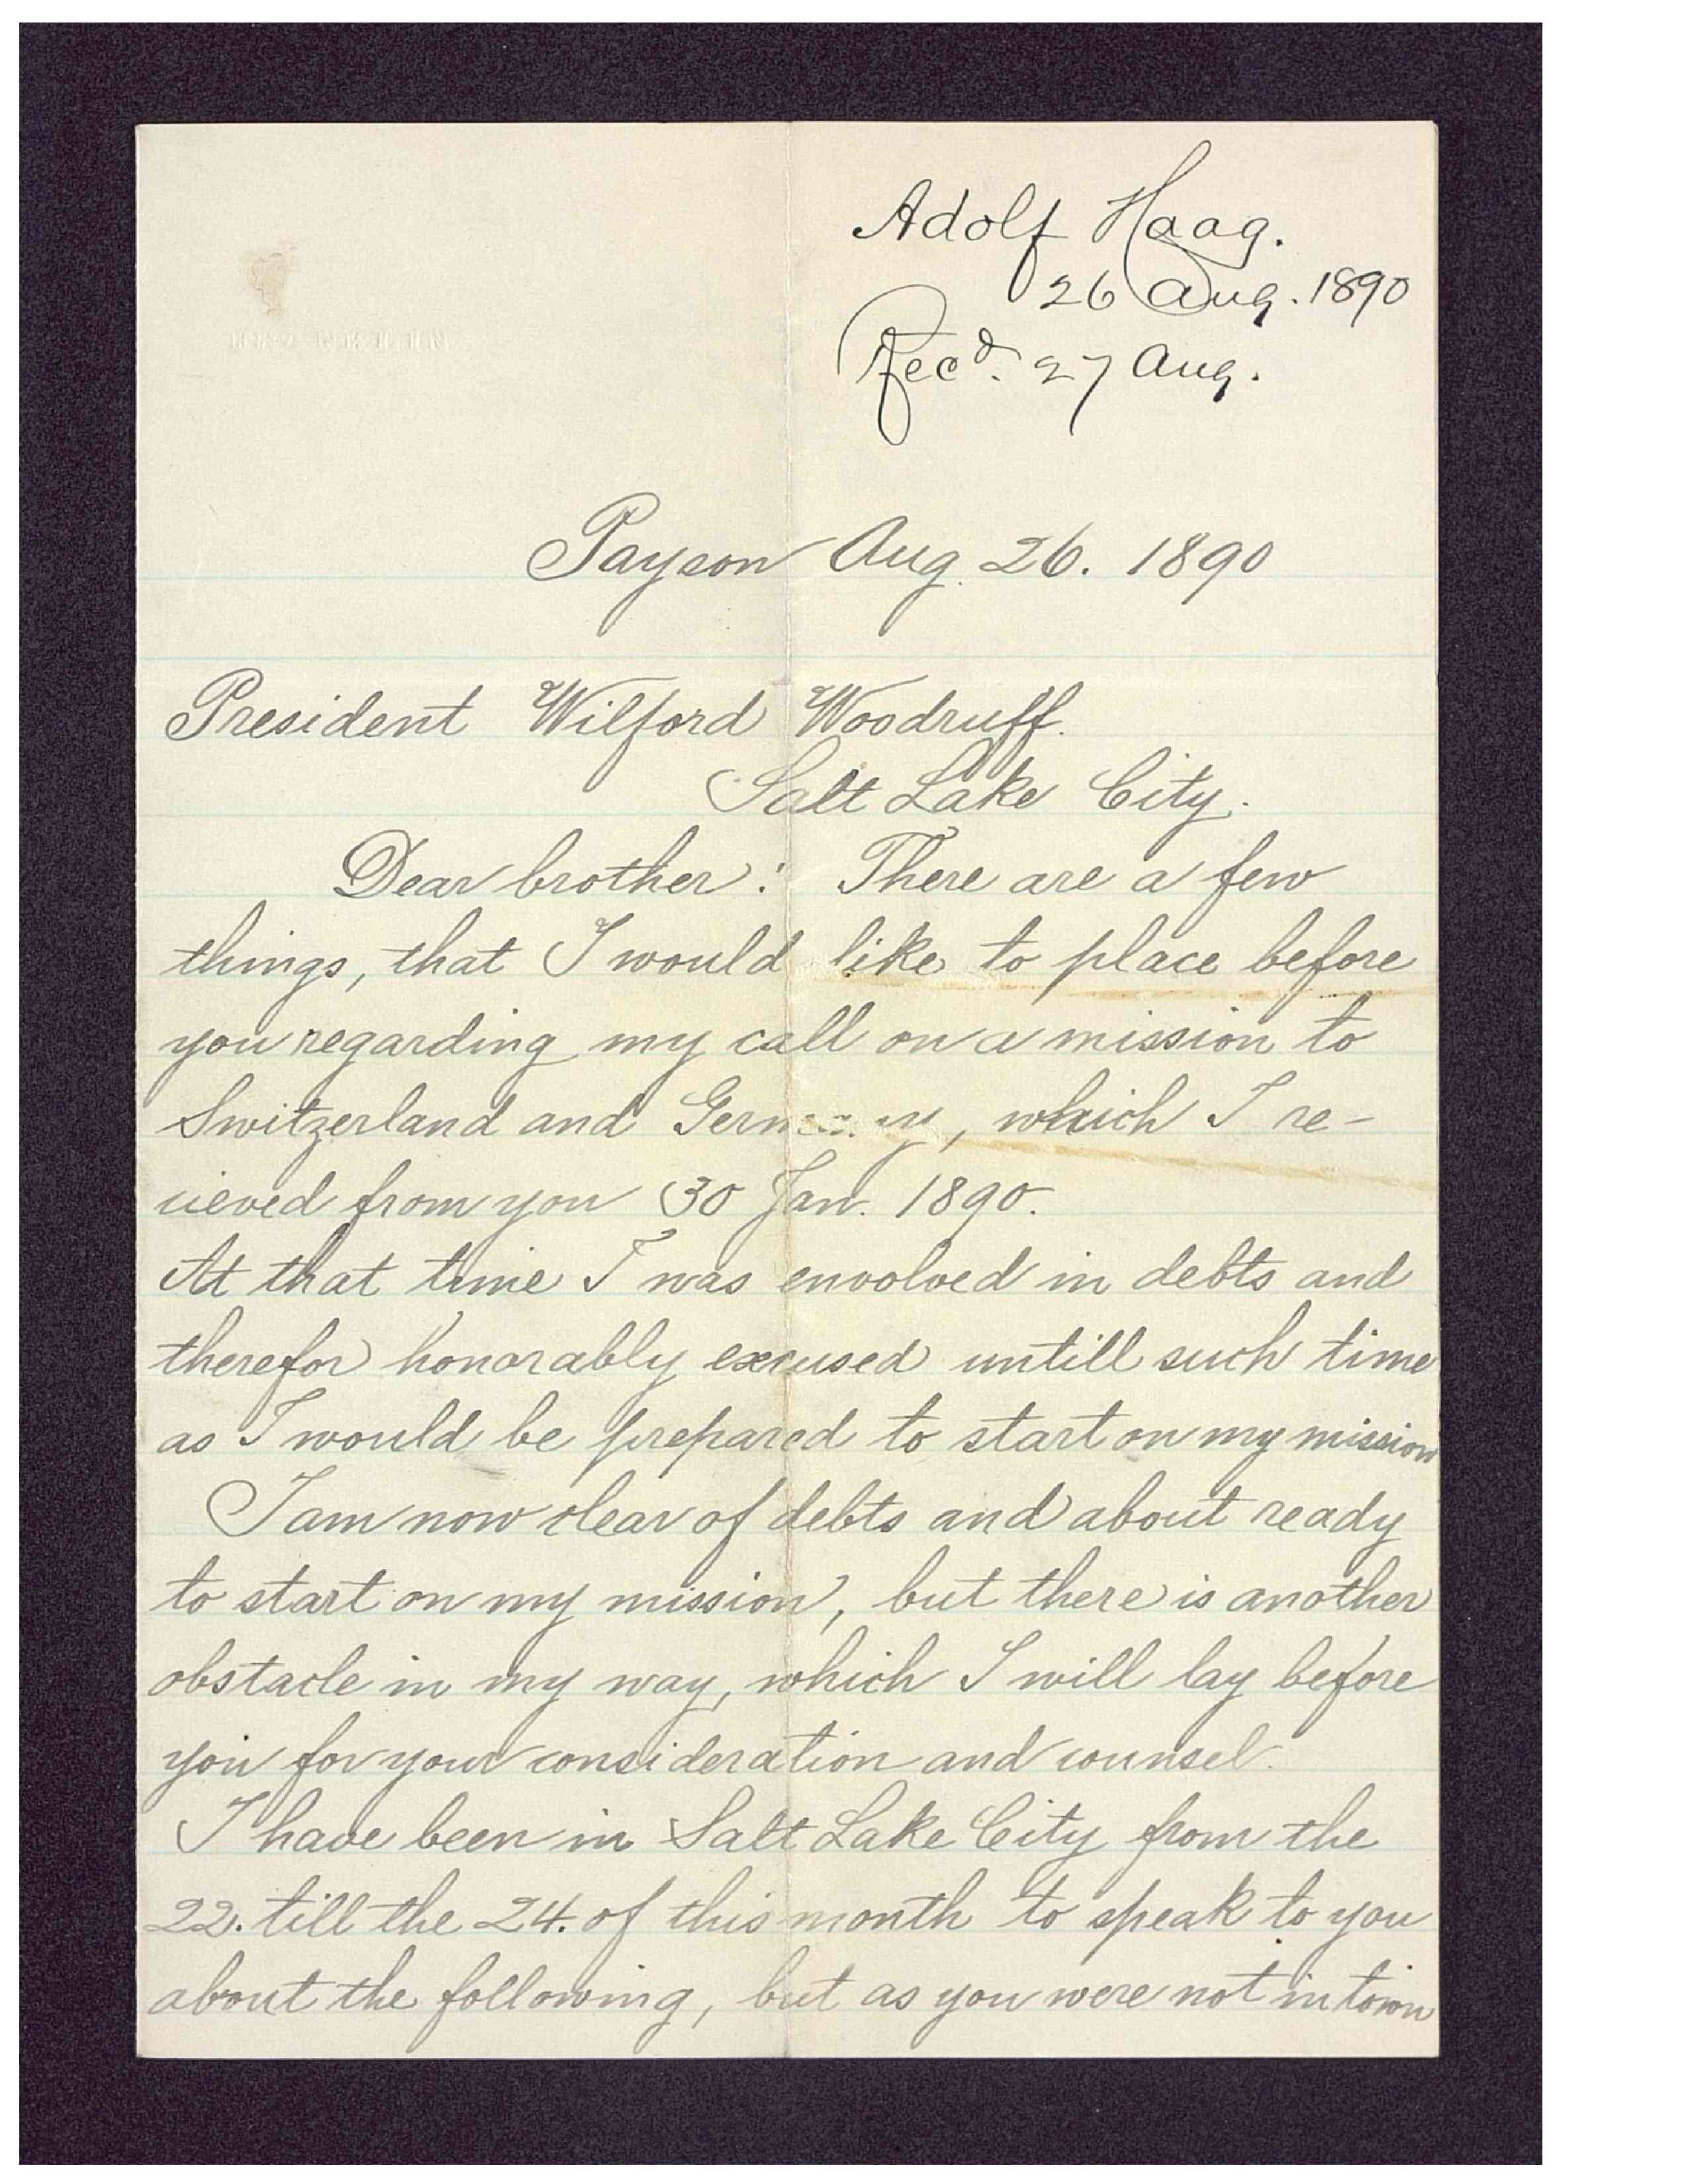 Adolf Haag.
26 Aug. 1890
Recd. 27 Aug.
Payson Aug. 26. 1890
President Wilford Woodruff.
Salt Lake City.
Dear brother: There are a few
things, that I would like to place before
you regarding my call on a mission to
Switzerland and Germany, which I re-
cieved from you 30 Jan. 1890.
At that time I was envolved in debts and
therefor honorably excused untill such time
as I would be prepared to start on my mission
I am now clear of debts and about ready
to start on my mission, but there is another
obstacle in my way, which I will lay before
you for your consideration and counsel.
I have been in Salt Lake City from the
22. till the 24. of this month to speak to you
about the following, but as you were not in town